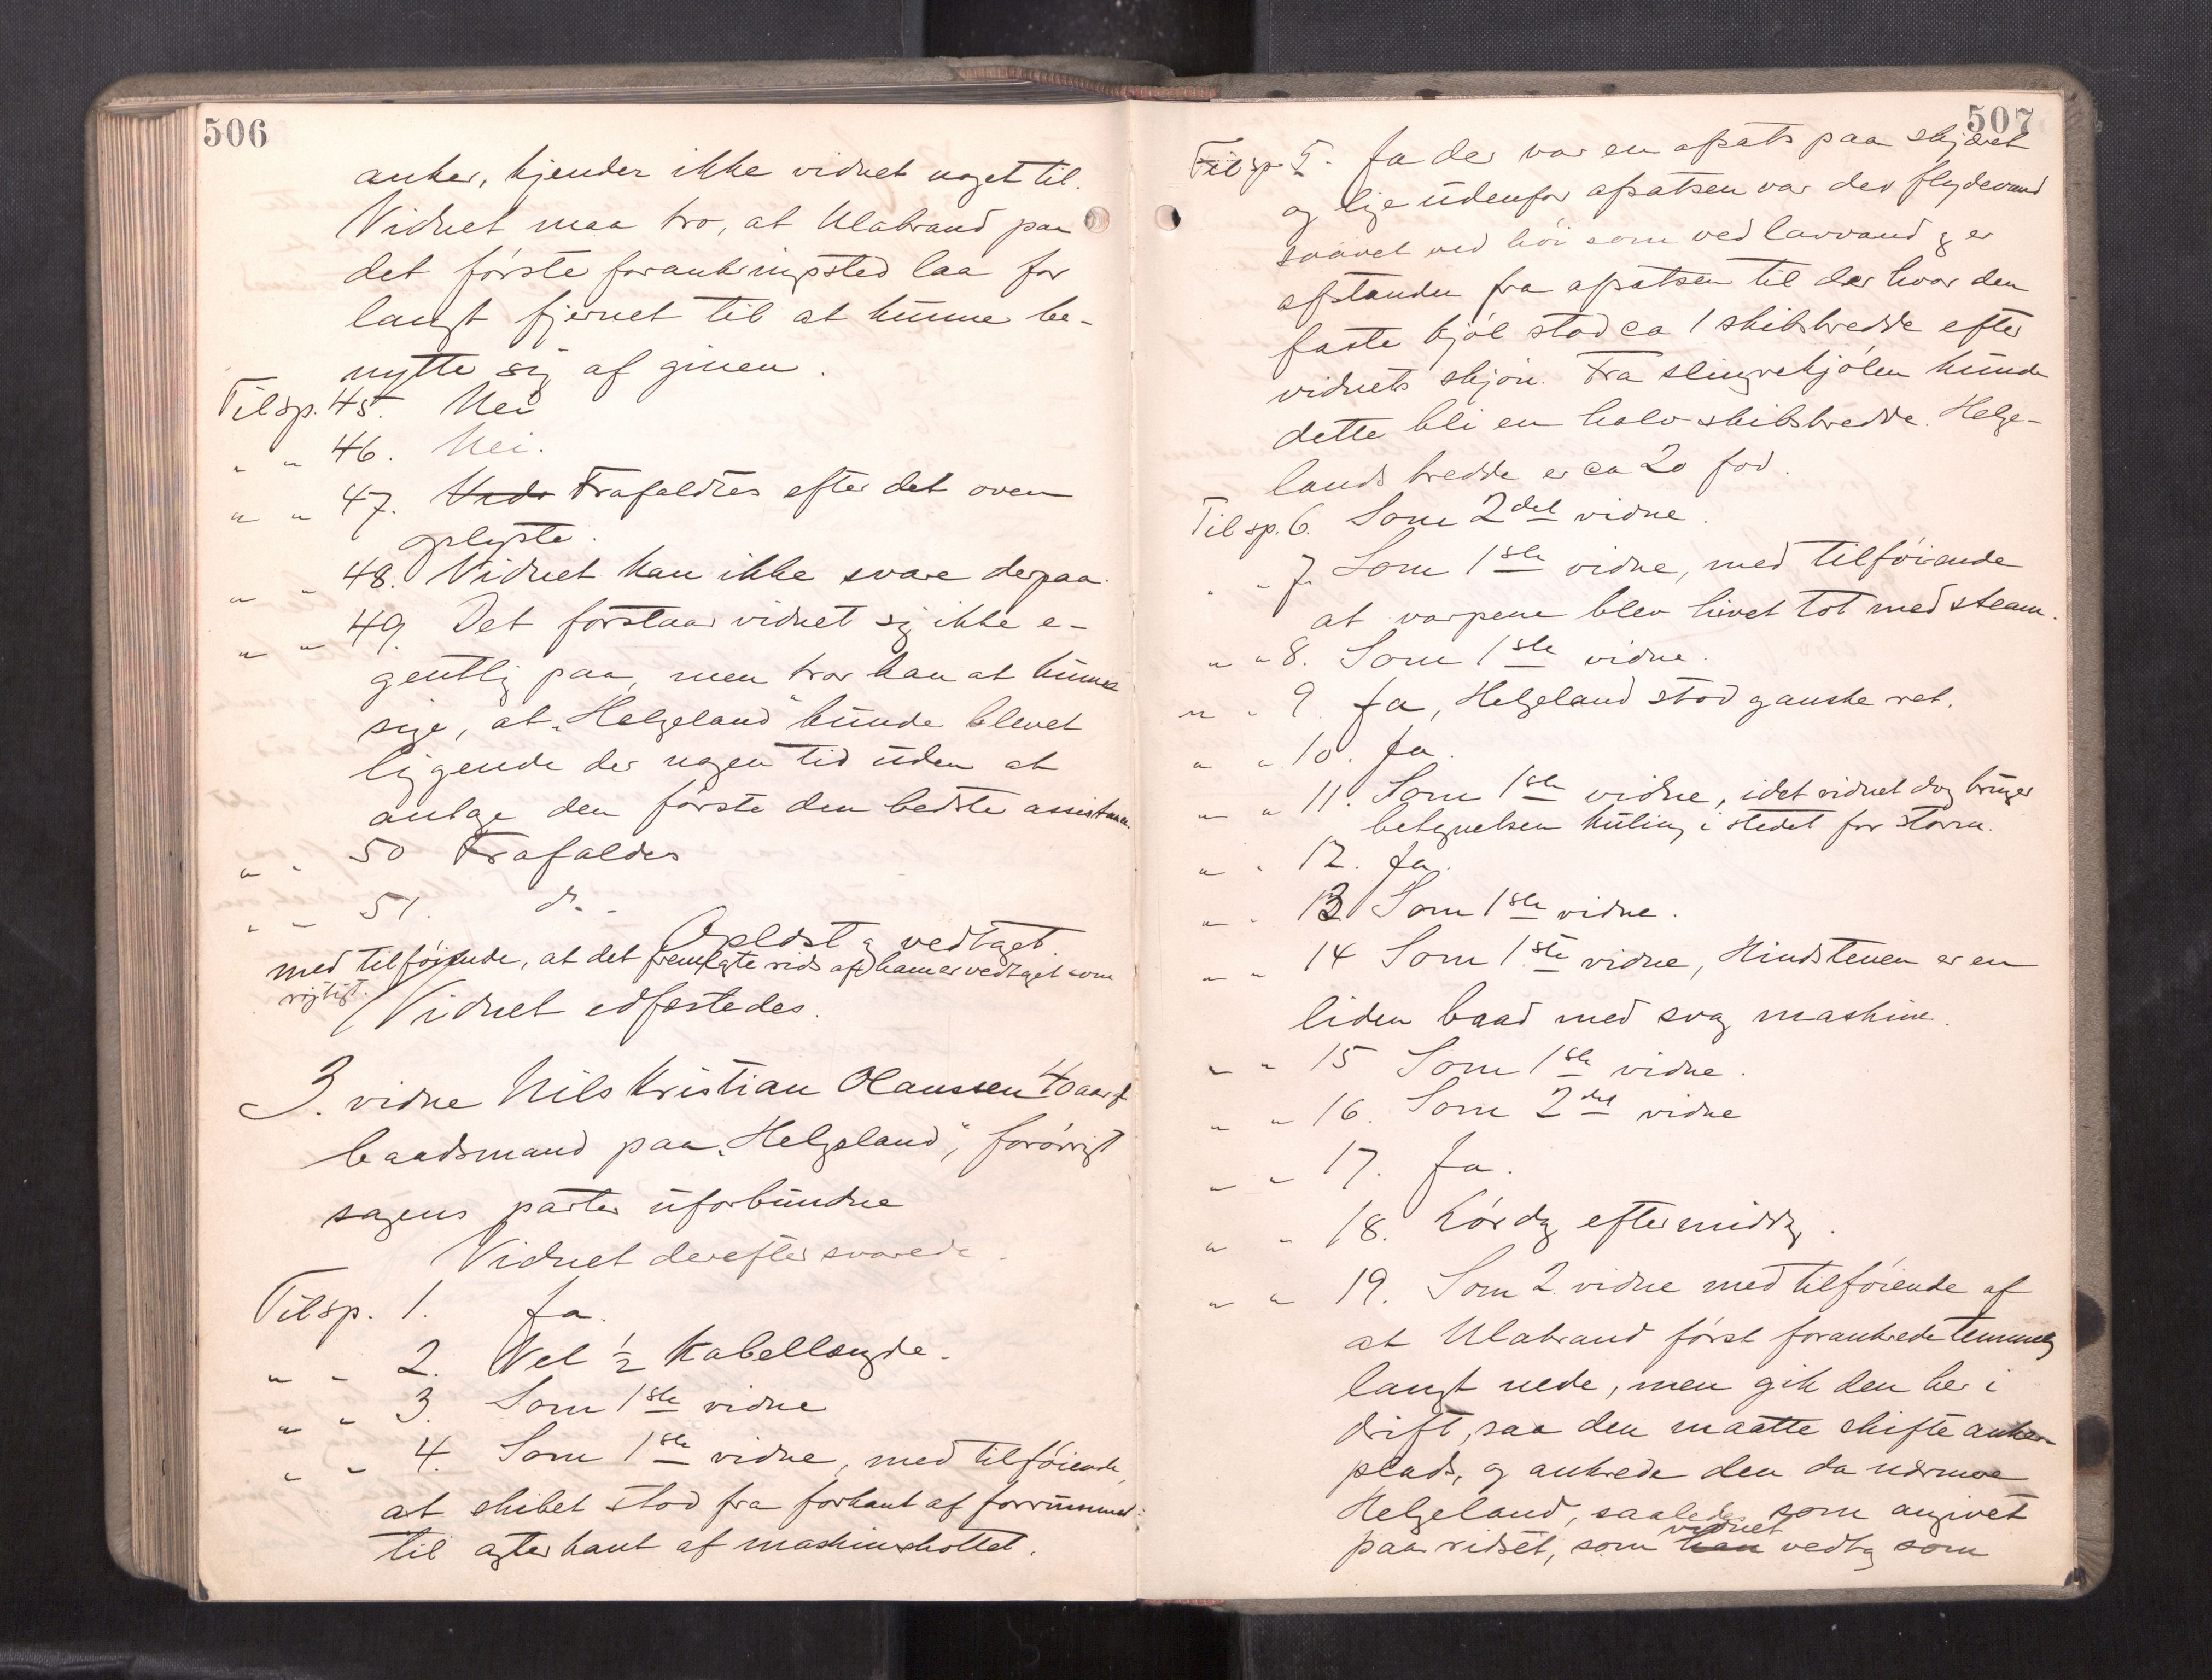 506
anker, kjender ikke vidnet noget til.
Vidnet maa tro, at Ulabrand paa
det første forankringssted laa for
langt fjernet til at kunne be-
nytte sig af ginen.
Til sp. 45. Nei
" " 46. Nei.
" " 47. Frafaldtes efter det oven
oplyste.
" " 48. Vidnet kan ikke svare derpaa.
" " 49. Det forstaar vidnet sig ikke e-
gentlig paa, men tror han at kunne
sige, at "Helgeland" kunde blevet
liggende der nogen tid uden at
antage den første den bedste assistance.
" " 50 Frafaldes
" " 51. do -
Oplæst & vedtaget
med tilføiende, at det fremlagte rids af ham er vedtaget som
rigtigt.
Vidnet edfæstedes.
3. vidne Nils Kristian Olaussen 40 aar gl
baadsmand paa "Helgeland", forøvrigt
sagens parter uforbundne
Vidnet derefter svarede.
Til sp. 1. Ja.
" " 2. Vel 1/2 Kabellængde.
" " 3. Som 1ste vidne
" " 4. Som 1ste vidne, med tilføiende,
at skibet stod fra forkant af forrummet
til agterkant af maskinskottet.
507
Til sp 5. Ja der var en afsats paa skjæret
og lige udenfor afsatsen var der flydevand
saavel ved høi som ved lavvand & er
afstanden fra afsatsen til der hvor den
faste kjøl stod ca 1 skibsbredde efter
vidnets skjøn. Fra slingrekjølen kunde
dette bli en halv skibsbredde. Helge-
lands bredde er ca 20 fod.
Til sp. 6. Som 2det vidne.
" " 7. Som 1ste vidne, med tilføiende
at varpene blev hivet tot med steam.
" " 8. Som 1ste vidne.
" " 9. Ja, Helgeland stod ganske ret.
" " 10. Ja.
" " 11. Som 1ste vidne, idet vidnet dog bruger
betegnelsen kuling i stedet for storm.
" " 12. Ja.
" " 13 Som 1ste vidne.
" " 14 Som 1ste vidne, Hindstenen er en
liden baad med svag maskine.
" " 15 Som 1ste vidne.
" " 16. Som 2det vidne
" " 17. Ja.
" " 18. Lørdag eftermiddag.
" " 19. Som 2 vidne med tilføiende af
at Ulabrand først forankrede temmelig
langt nede, men gik den her i
drift, saa den maatte skifte anker-
plads, og ankrede den da nærmere
Helgeland, saaledes som angivet
paa ridset, som han vidnet vedtog som